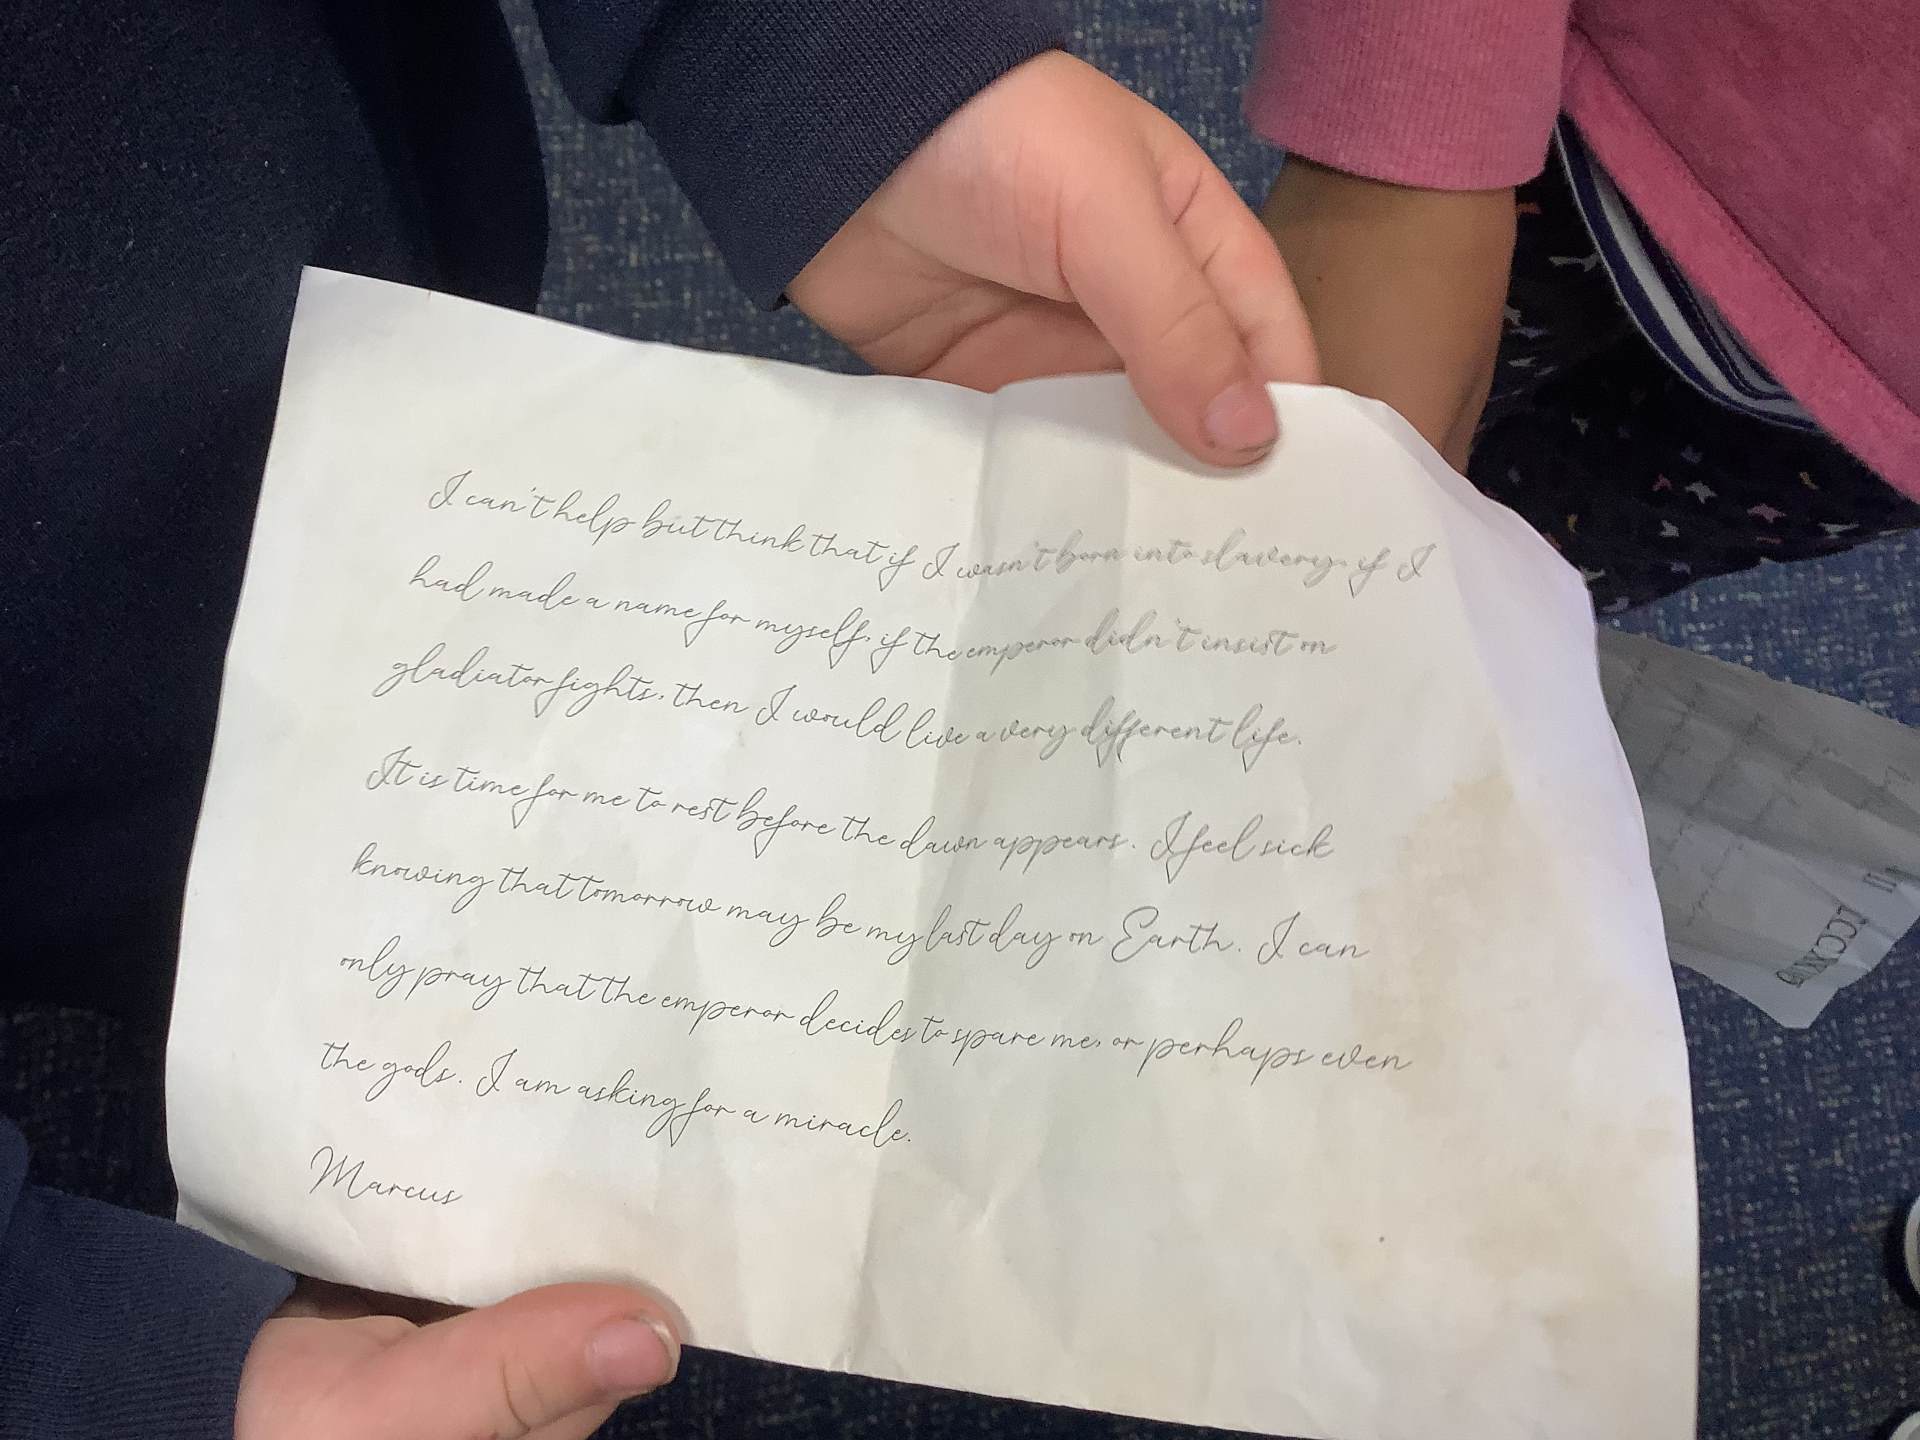 I can't help but think that if I wasn't born into slavery, if I
had made a name for myself, if the emperor didn't insist on
gladiator fights, then I would live a very different life.
It is time for me to rest before the dawn appears. I feel sick
knowing that tomorrow may be my last day on Earth. I can
only pray that the emperor decides to spare me, or perhaps even
the gods. I am asking for a miracle.
Marcus